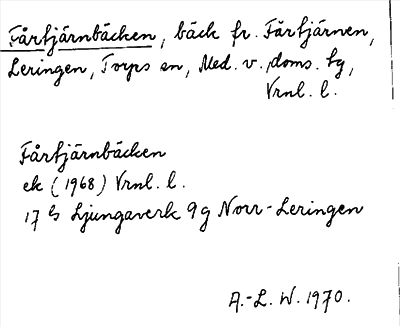 Fårtjärnbäcken, bäck fr. Fårtjärnen,
Leringen, Torps sn, Med. v. doms. tg,
Vrnl. l.
Fårtjärnbäcken
ek (1968) Vrnl. l.
17 Ljungaverk 9g Norr-Leringen
A.-L. W. 1970.